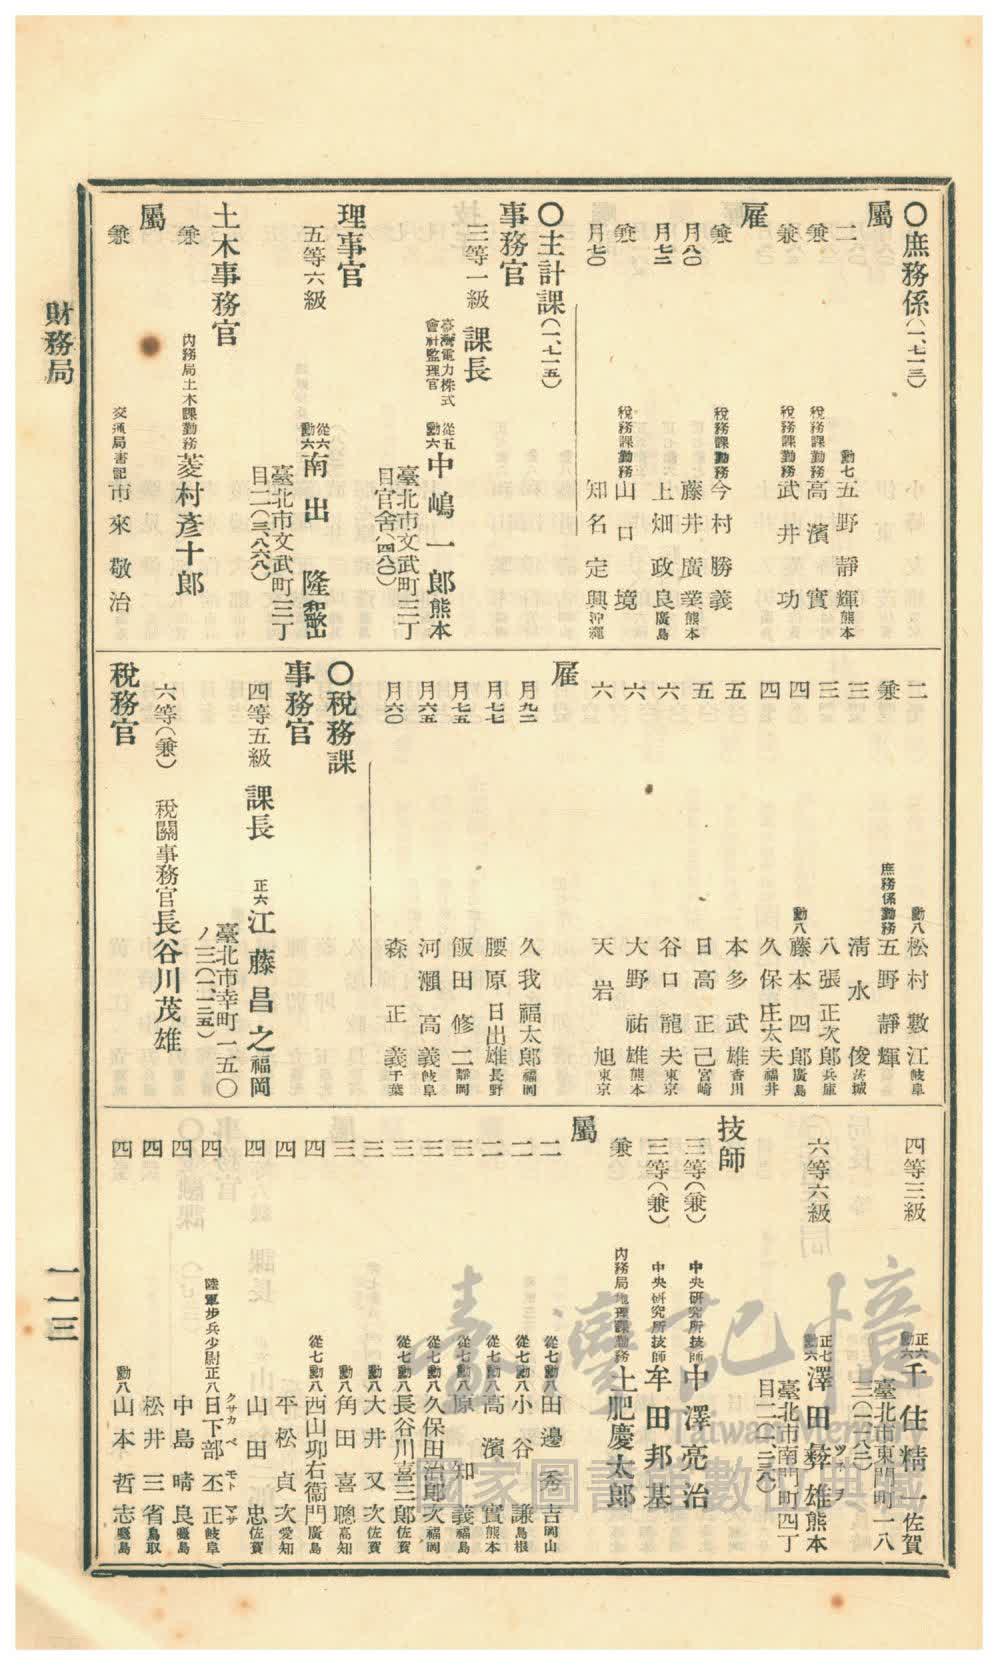 財務局
一一三
〇庶務係(一、七一三)
屬
二 勳七 五野靜輝 熊本
兼 稅務課勤務 高濱實
兼 稅務課勤務 武井功
雇
兼 稅務課勤務 今村勝義
月八〇 藤井廣業 熊本
月七二 上畑政良 廣島
兼 稅務課勤務 山口境
月七〇 知名定興 沖繩
〇主計課(一、七一五)
事務官
三等一級 課長 臺灣電力株式會社監理官 從五勳六 中嶋一郎 熊本
臺北市文武町三丁
目官舍(四八〇)
理事官
五等六級 從六勳六 南出隆 和歌山
臺北市文武町三丁
目二(三八六八)
土木事務官
兼 內務局土木課勤務 菱村彥十郎
屬
兼 交通局書記 市來敬治
二 勳八 松村數江 岐阜
兼 庶務係勤務 五野靜輝
三 清水俊 茨城
三 八張正次郎 兵庫
四 勳八 藤本四郎 廣島
四 久保庄太夫 福井
五 本多武雄 香川
五 日高正己 宮崎
六 谷口龍夫 東京
六 大野祐雄 熊本
六 天岩旭 東京
雇
月九二 久我福太郎 福岡
月七七 腰原日出雄 長野
月七五 飯田修二 靜岡
月六五 河瀨高義 岐阜
月六〇 森正義 千葉
〇稅務課
事務官
四等五級 課長 正六 江藤昌之 福岡
臺北市幸町一五〇
ノ三(二、二三五)
六等(兼) 稅關事務官 長谷川茂雄
稅務官
四等三級 正六勳六 千住精一 佐賀
臺北市東門町一八
三(二一八二)
六等六級 正七勳六 澤田彝雄 熊本
ツネヲ
臺北市南門町四丁
目二(二、二三八)
技師
三等(兼) 中央硏究所技師 中澤亮治
三等(兼) 中央硏究所技師 牟田邦基
兼 內務局地理課勤務 土肥慶太郎
屬
二 從七勳八 田邊秀吉 岡山
二 從七勳八 小谷謙 島根
二 從七勳八 高濱實 熊本
三 從七勳八 原知義 福島
三 從七勳八 久保田治郎次 福岡
三 從七勳八 長谷川喜三郎 佐賀
三 從七勳八 大井又次 佐賀
三 勳八 角田喜聰 高知
四 從七勳八 西山卯右衞門 廣島
四 平松貞次 愛知
四 山田忠 佐賀
四 陸軍步兵少尉正八 日下部丕正 岐阜
クサカベ モトマサ
四 中島晴良 福島
四 松井三省 鳥取
四 勳八 山本哲志 福島
臺灣記憶
Taiwan Memory
國家圖書館數位典藏